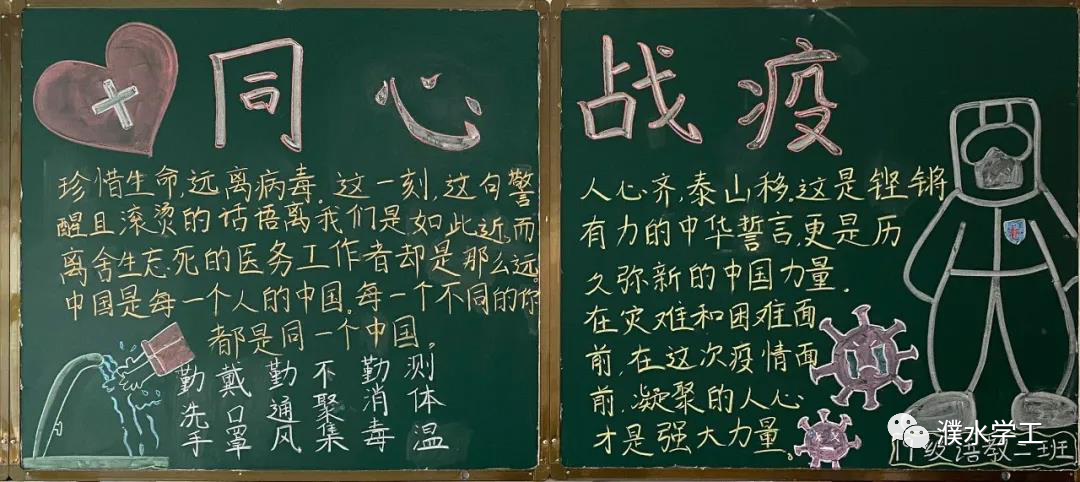 同心
珍惜生命,远离病毒。这一刻,这句警
醒且滚烫的话语离我们是如此近,而
离舍生忘死的医务工作者却是那么远。
中国是每一个人的中国。每一个不同的你
都是同一个中国。
勤洗手
戴口罩
勤通风
不聚集
勤消毒
测体温
战疫
人心齐,泰山移。这是铿锵
有力的中华誓言,更是历
久弥新的中国力量。
在灾难和困难面
前,在这次疫情面
前,凝聚的人心
才是强大力量。
濮水学工
级语教二班